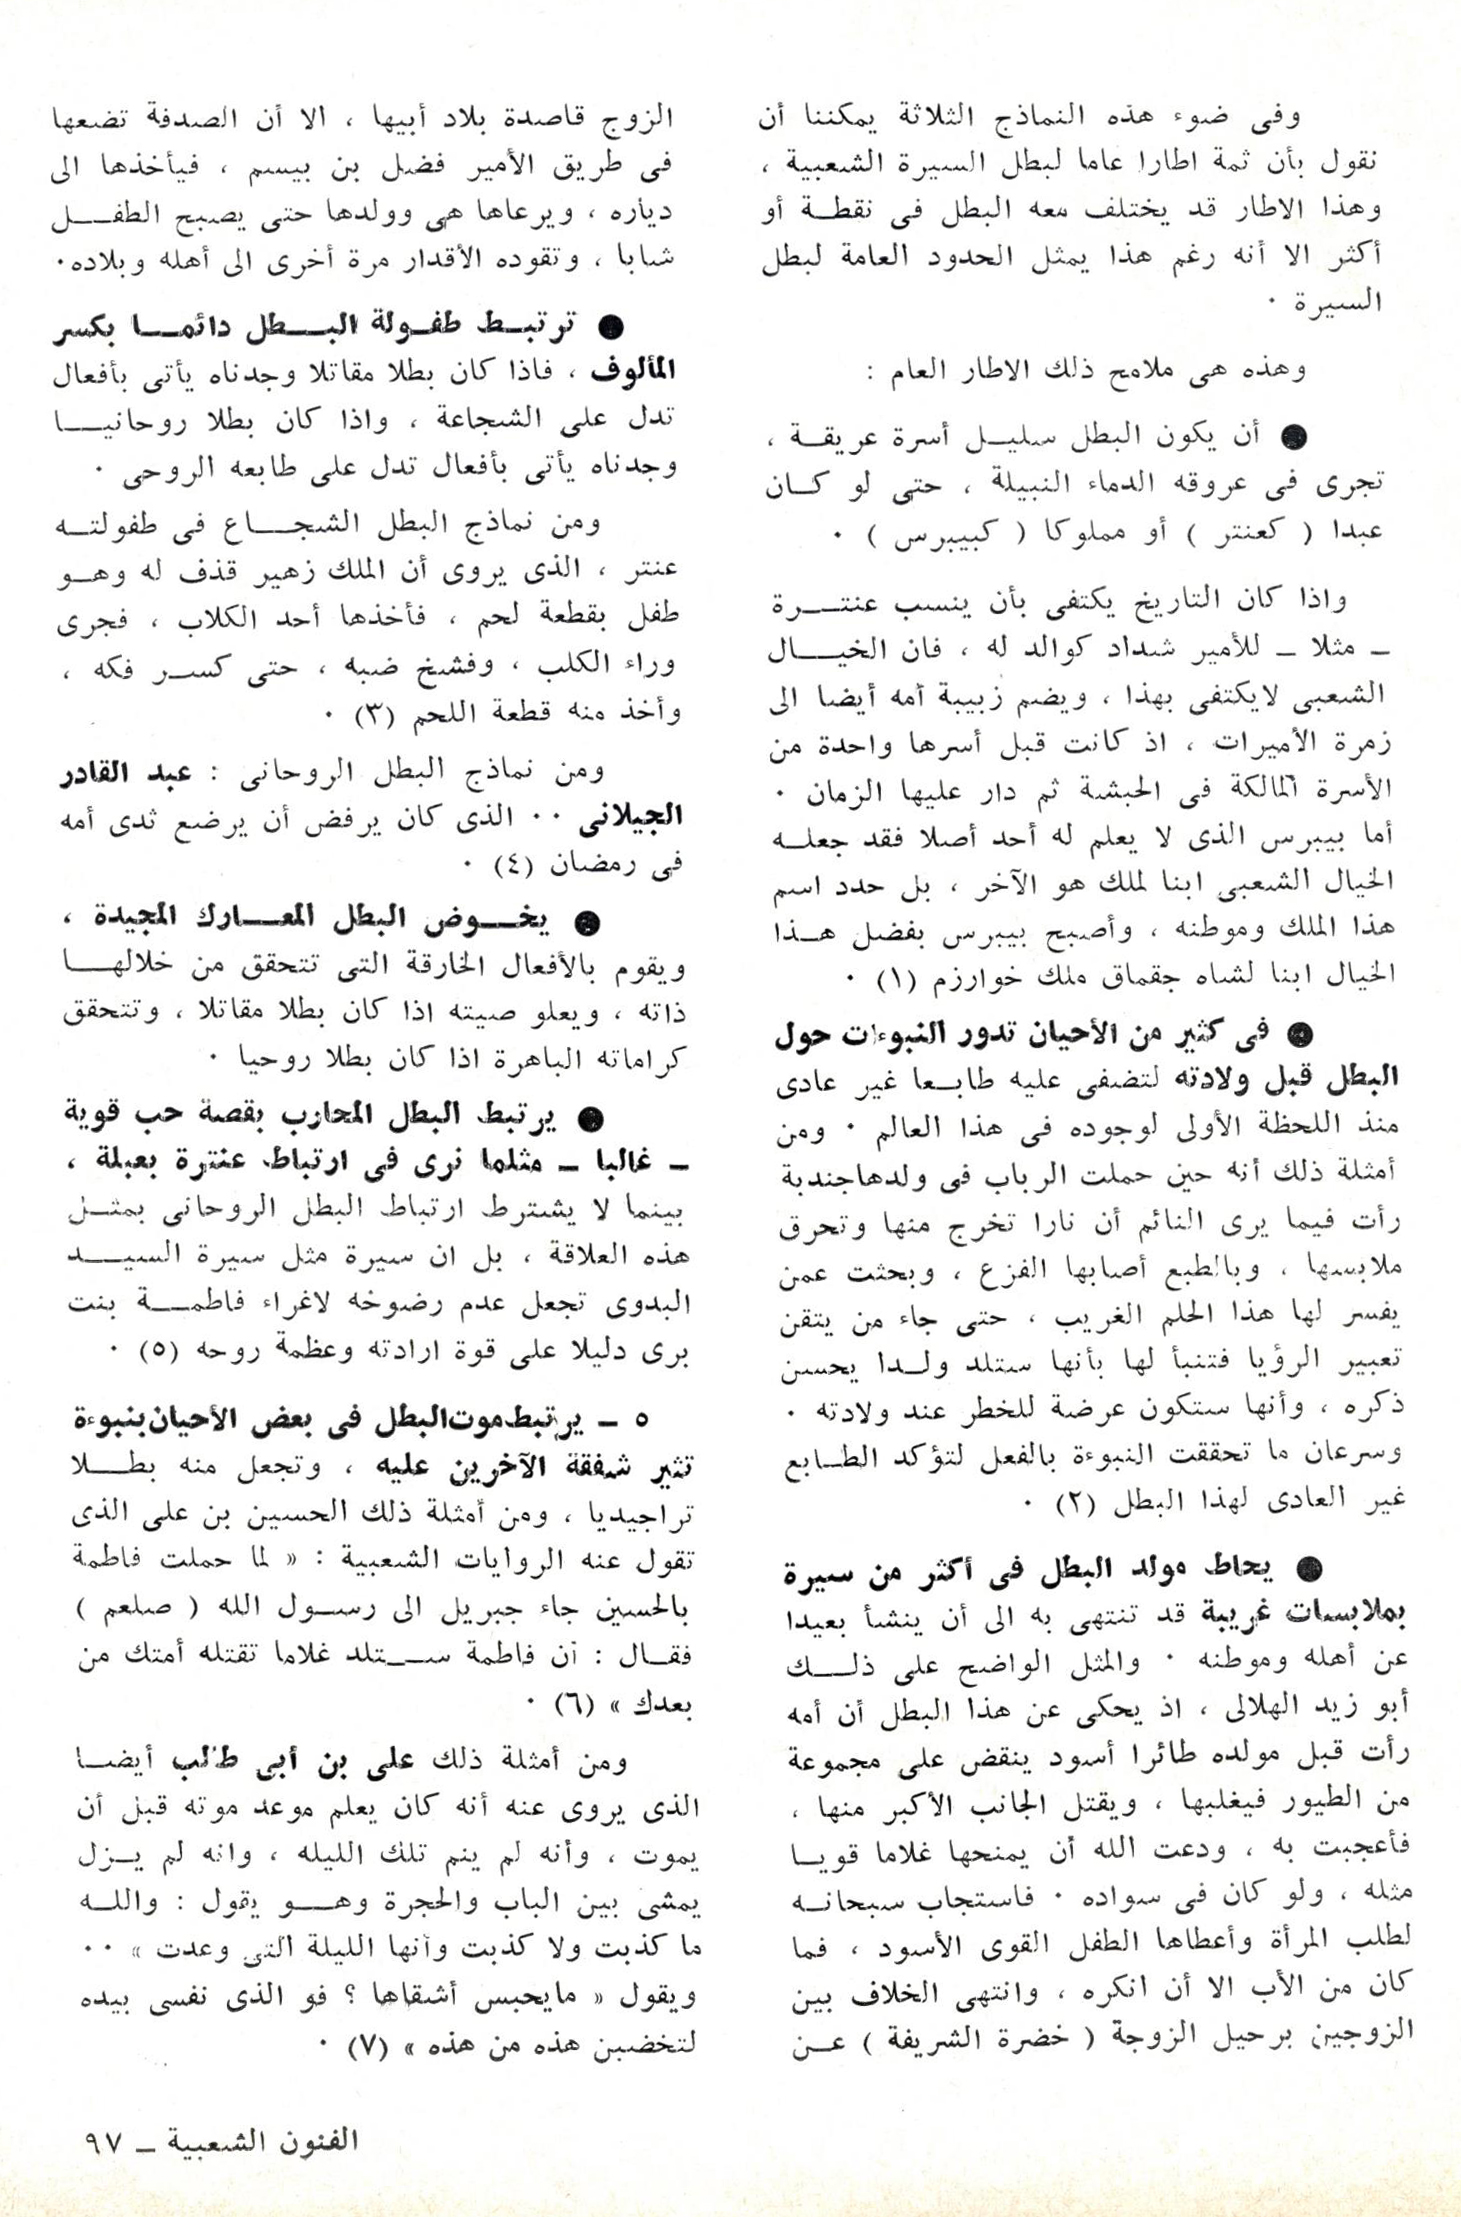 وفى ضوء هذه النماذج الثلاثة يمكننا أن
نقول بأن ثمة اطارا عاما لبطل السيرة الشعبية ،
وهذا الاطار قد يختلف معه البطل فى نقطة أو
أكثر الا أنه رغم هذا يمثل الحدود العامة لبطل
السيرة ٠
وهذه هى ملامح ذلك الاطار العام :
● أن يكون البطل سليل أسرة عريقة ،
تجرى فى عروقه الدماء النبيلة ، حتى لو كان
عبدا ( كعنتر ) أو مملوكا ( كبيبرس ) ٠
واذا كان التاريخ يكتفى بأن ينسب عنترة
ـ مثلا ـ للأمير شداد كوالد له ، فان الخيال
الشعبى لايكتفى بهذا ، ويضم زبيبة أمه أيضا الى
زمرة الأميرات ، اذ كانت قبل أسرها واحدة من
الأسرة المالكة فى الحبشة ثم دار عليها الزمان ٠
أما بيبرس الذى لا يعلم له أحد أصلا فقد جعله
الخيال الشعبى ابنا لملك هو الآخر ، بل حدد اسم
هذا الملك وموطنه ، وأصبح بيبرس بفضل هذا
الخيال ابنا لشاه جقماق ملك خوارزم (١) ٠
● فى كثير من الأحيان تدور النبوءات حول
البطل قبل ولادته لتضفى عليه طابعا غير عادى
منذ اللحظة الأولى لوجوده فى هذا العالم ٠ ومن
أمثلة ذلك أنه حين حملت الرباب فى ولدها جندبة
رأت فيما يرى النائم أن نارا تخرج منها وتحرق
ملابسها ، وبالطبع أصابها الفزع ، وبحثت عمن
يفسر لها هذا الحلم الغريب ، حتى جاء من يتقن
تعبير الرؤيا فتنبأ لها بأنها ستلد ولدا يحسن
ذكره ، وأنها ستكون عرضة للخطر عند ولادته ٠
وسرعان ما تحققت النبوءة بالفعل لتؤكد الطابع
غير العادى لهذا البطل (٢) ٠
● يحاط مولد البطل فى أكثر من سيرة
بملابسات غريبة قد تنتهى به الى أن ينشأ بعيدا
عن أهله وموطنه ٠ والمثل الواضح على ذلك
أبو زيد الهلالى ، اذ يحكى عن هذا البطل أن أمه
رأت قبل مولده طائرا أسود ينقض على مجموعة
من الطيور فيغلبها ، ويقتل الجانب الأكبر منها ،
فأعجبت به ، ودعت الله أن يمنحها غلاما قويا
مثله ، ولو كان فى سواده ٠ فاستجاب سبحانه
لطلب المرأة وأعطاها الطفل القوى الأسود ، فما
كان من الأب الا أن انكره ، وانتهى الخلاف بين
الزوجين برحيل الزوجة ( خضرة الشريفة ) عن
الزوج قاصدة بلاد أبيها ، الا أن الصدفة تضعها
فى طريق الأمير فضل بن بيسم ، فيأخذها الى
دياره ، ويرعاها هى وولدها حتى يصبح الطفل
شابا ، وتقوده الأقدار مرة أخرى الى أهله وبلاده٠
● ترتبط طفولة البطل دائما بكسر
المألوف ، فاذا كان بطلا مقاتلا وجدناه يأتى بأفعال
تدل على الشجاعة ، واذا كان بطلا روحانيا
وجدناه يأتى بأفعال تدل على طابعه الروحى ٠
ومن نماذج البطل الشجاع فى طفولته
عنتر ، الذى يروى أن الملك زهير قذف له وهو
طفل بقطعة لحم ، فأخذها أحد الكلاب ، فجرى
وراء الكلب ، وفشخ ضبه ، حتى كسر فكه ،
وأخذ منه قطعة اللحم (٣) ٠
ومن نماذج البطل الروحانى : عبد القادر
الجيلانى ٠٠ الذى كان يرفض أن يرضع ثدى أمه
فى رمضان (٤) ٠
● يخوض البطل المعارك المجيدة ،
ويقوم بالأفعال الخارقة التى تتحقق من خلالها
ذاته ، ويعلو صيته اذا كان بطلا مقاتلا ، وتتحقق
كراماته الباهرة اذا كان بطلا روحيا ٠
● يرتبط البطل المحارب بقصة حب قوية
ـ غالبا ـ مثلما نرى فى ارتباط عنترة بعبلة ،
بينما لا يشترط ارتباط البطل الروحانى بمثل
هذه العلاقة ، بل ان سيرة مثل سيرة السيد
البدوى تجعل عدم رضوخه لاغراء فاطمة بنت
برى دليلا على قوة ارادته وعظمة روحه (٥) ٠
٥ ـ يرتبط موت البطل فى بعض الأحيان بنبوءة
تثير شفقة الآخرين عليه ، وتجعل منه بطلا
تراجيديا ، ومن أمثلة ذلك الحسين بن على الذى
تقول عنه الروايات الشعبية : « لما حملت فاطمة
بالحسين جاء جبريل الى رسول الله ( صلعم )
فقال : أن فاطمة ستلد غلاما تقتله أمتك من
بعدك » (٦) ٠
ومن أمثلة ذلك على بن أبى طالب أيضا
الذى يروى عنه أنه كان يعلم موعد موته قبل أن
يموت ، وأنه لم ينم تلك الليله ، وانه لم يزل
يمشى بين الباب والحجرة وهو يقول : والله
ما كذبت ولا كذبت وأنها الليلة التى وعدت » ٠٠
ويقول « مايحبس أشقاها ؟ فو الذى نفسى بيده
لتخضبن هذه من هذه » (٧) ٠
الفنون الشعبية ـ ٩٧